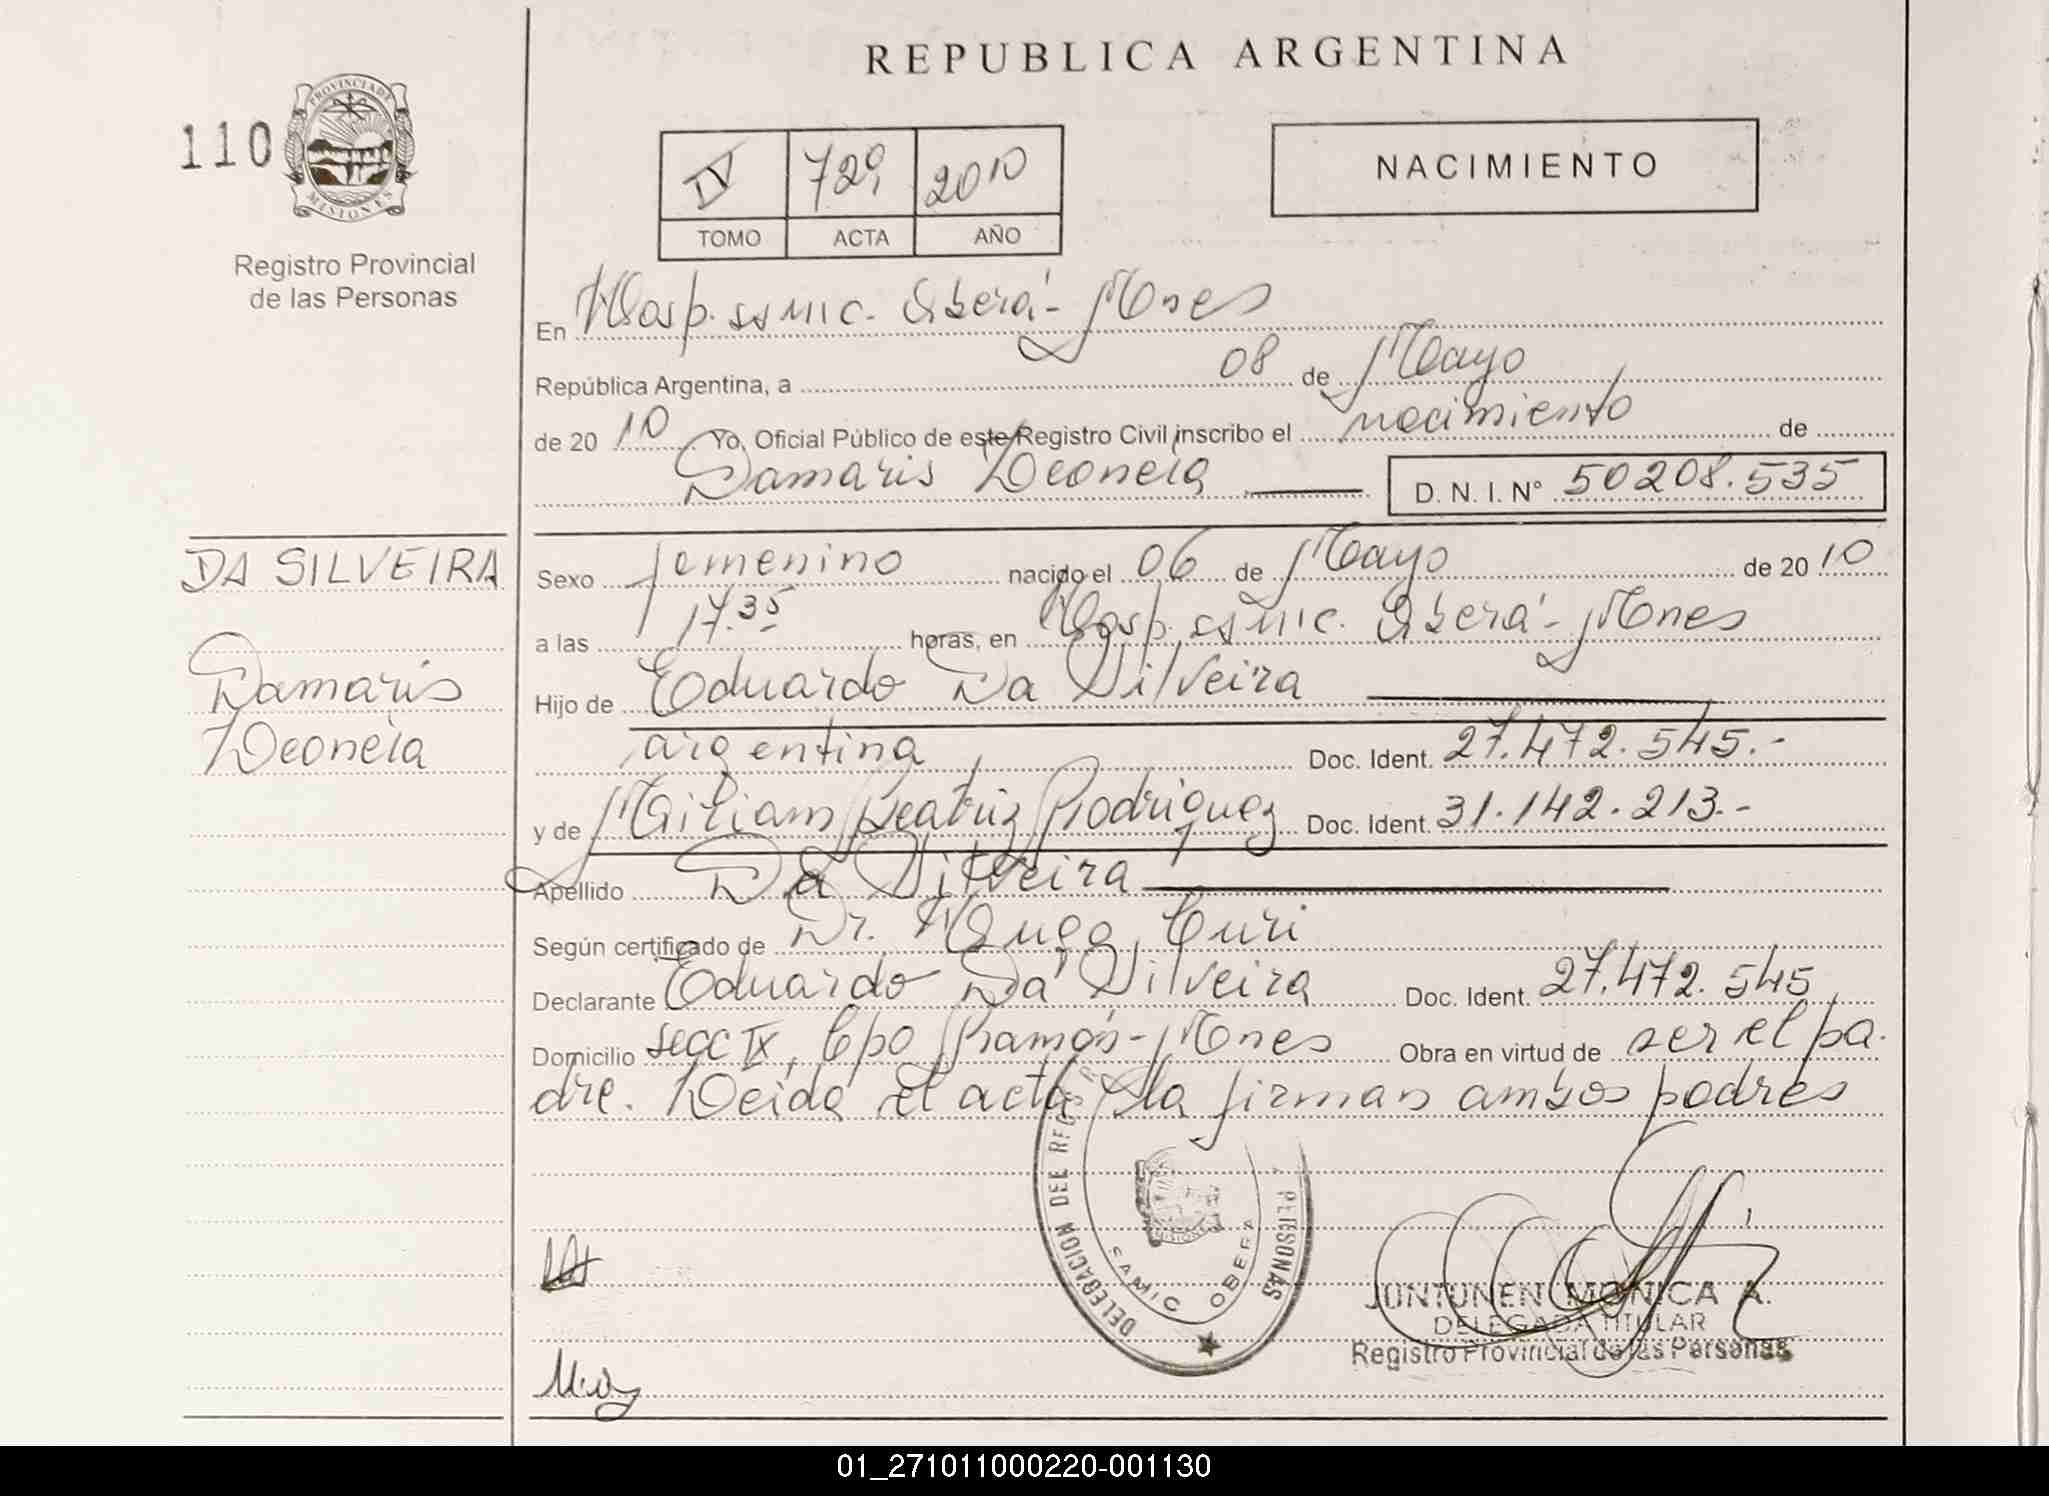 REPUBLICA ARGENTINA
110
PROVINCIA DE
MISIONES
Registro Provincial
de las Personas
IV 729 2010
TOMO ACTA AÑO
NACIMIENTO
En Hosp. SAMIC. Oberá - Mnes
República Argentina, a 08 de Mayo
de 20 10 Yo, Oficial Público de este Registro Civil inscribo el nacimiento de
Damaris Leonela D. N. I. N° 50208.535
DA SILVEIRA
Damaris
Leonela
Sexo femenino nacido el 06 de Mayo de 20 10
a las 17.35 horas, en Hosp. SAMIC. Oberá - Mnes
Hijo de Eduardo Da Silveira
argentina Doc. Ident. 27.472.545.-
y de Miriam Beatriz Rodriguez Doc. Ident. 31.142.213.-
Apellido Da Silveira
Según certificado de Dr. Hugo Curi
Declarante Eduardo Da Silveira Doc. Ident. 27.472.545
Domicilio secc IX, Cpo Ramón - Mnes Obra en virtud de ser el pa.
dre. Leida el acta la firman ambos padres
DELEGACION DEL REG PERSONAS
MISIONES
SAMIC OBERA
JUNTUNEN MONICA A.
DELEGADA TITULAR
Registro Provincial de las Personas
01_271011000220-001130